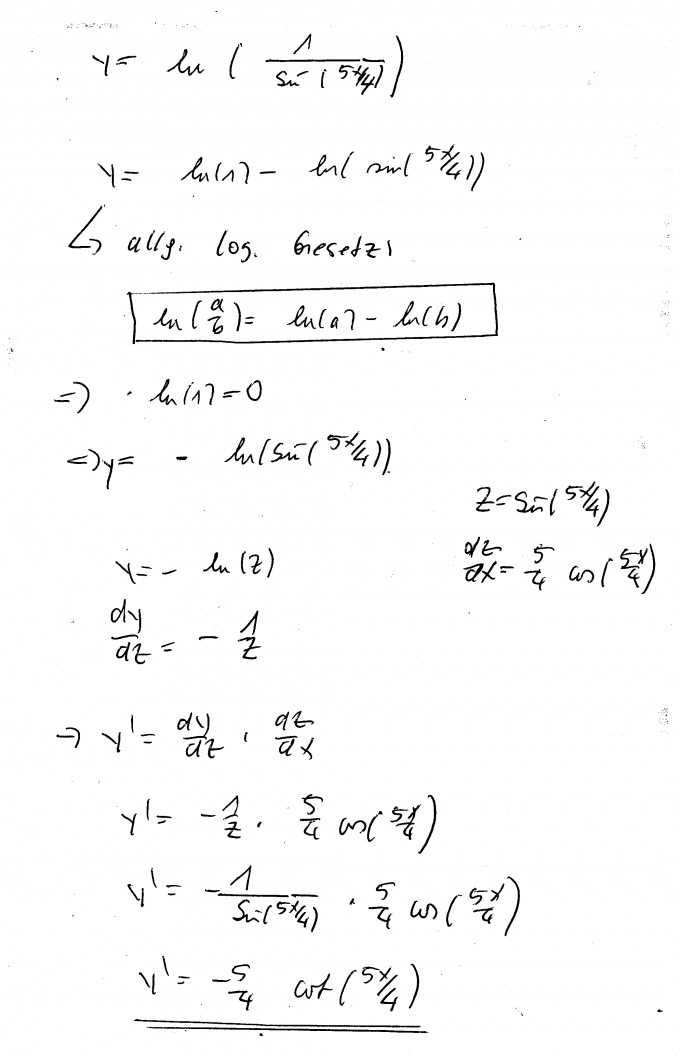 y = ln ( 1 / sin (5x/4) )
y = ln(1) - ln( sin( 5x/4 ))
↳ allg. log. Gesetz:
ln ( a/b ) = ln(a) - ln(b)
=> · ln(1) = 0
<=> y = - ln(sin( 5x/4 ))
z = sin( 5x/4 )
dz/dx = 5/4 cos( 5x/4 )
y = - ln (z)
dy/dz = - 1/z
→ y' = dy/dz · dz/dx
y' = - 1/z · 5/4 cos( 5x/4 )
y' = - 1/sin(5x/4) · 5/4 cos( 5x/4 )
y' = - 5/4 cot ( 5x/4 )